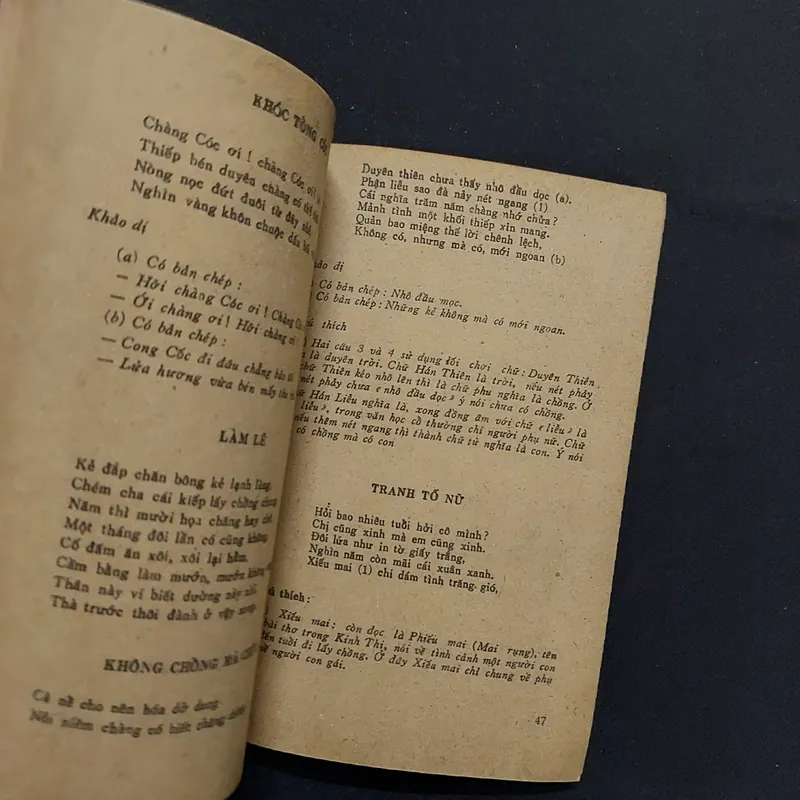 KHÓC TỔNG CÓC
Chàng Cóc ơi ! chàng Cóc ơi !
Thiếp bén duyên chàng có thế
Nòng nọc đứt đuôi từ đây nhé,
Nghìn vàng khôn chuộc dấu bôi
Khảo dị
(a) Có bản chép :
— Hỡi chàng Cóc ơi ! Chàng Cóc
— Ới chàng ơi ! Hỡi chàng ơi
(b) Có bản chép :
— Cong Cóc đi đâu chẳng bảo
— Lửa hương vừa bén mấy
LÀM LẼ
Kẻ đắp chăn bông kẻ lạnh lùng,
Chém cha cái kiếp lấy chồng chung
Năm thì mười họa chăng hay chớ
Một tháng đôi lần có cũng không
Cố đấm ăn xôi, xôi lại hẩm,
Cầm bằng làm mướn, mướn không
Thân này ví biết dường này nhỉ
Thà trước thôi đành ở vậy xong.
KHÔNG CHỒNG MÀ
Cả nể cho nên hóa dở dang
Nỗi niềm chàng có biết chăng
Duyên thiên chưa thấy nhô đầu dọc (a).
Phận liễu sao đà nảy nét ngang (1)
Cái nghĩa trăm năm chàng nhớ chửa ?
Mảnh tình một khối thiếp xin mang.
Quản bao miệng thế lời chênh lệch,
Không có, nhưng mà có, mới ngoan (b)
hảo dị
) Có bản chép : Nhô đầu mọc.
Có bản chép : Những kẻ không mà có mới ngoan.
thích
Hai câu 3 và 4 sử dụng lối chơi chữ : Duyên Thiên
là duyên trời. Chữ Hán Thiên là trời, nếu nét phẩy
chữ Thiên kéo nhô lên thì là chữ phu nghĩa là chồng. Ở
nét phẩy chưa « nhô đầu dọc » ý nói chưa có chồng.
ữ Hán Liễu nghĩa là, xong đồng âm với chữ « liễu » là
liễu », trong văn học cổ thường chỉ người phụ nữ. Chữ
nếu thêm nét ngang thì thành chữ tử nghĩa là con. Ý nói
có chồng mà có con
TRANH TỐ NỮ
Hỏi bao nhiêu tuổi hỡi cô mình ?
Chị cũng xinh mà em cũng xinh.
Đôi lứa như in tờ giấy trắng,
Nghìn năm còn mãi cái xuân xanh.
Xiếu mai (1) chi dám tình trăng gió,
ú thích :
Xiếu mai : còn đọc là Phiếu mai (Mai rụng), tên
bài thơ trong Kinh Thi, nói về tình cảnh một người con
ến tuổi đi lấy chồng. Ở đây Xiếu mai chỉ chung về phụ
về người con gái.
47